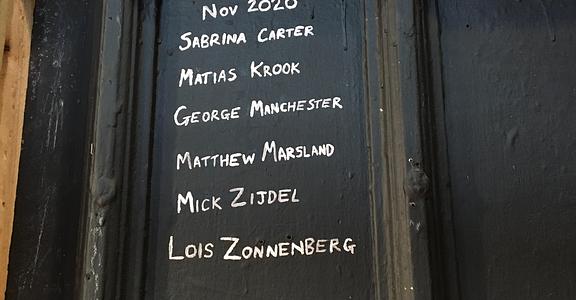 Nov 2020
SABRINA CARTER
MATIAS KROOK
GEORGE MANCHESTER
MATTHEW MARSLAND
MICK ZIJDEL
LOIS ZONNENBERG